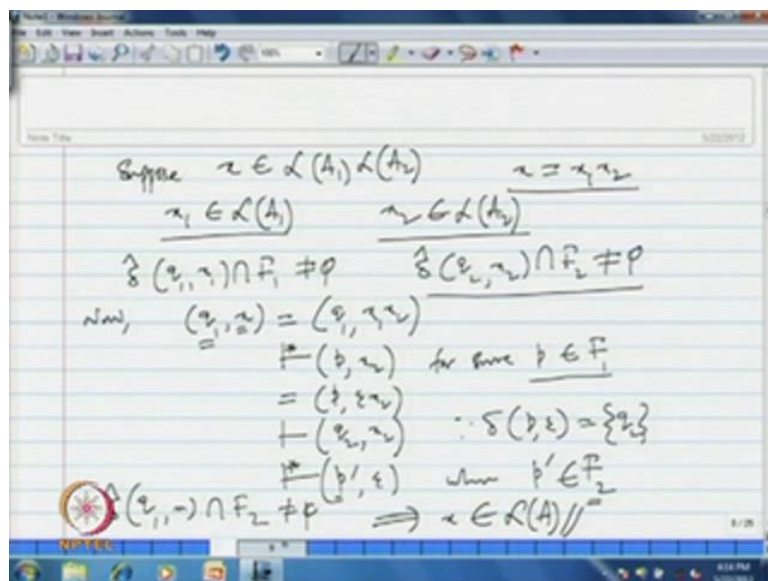 Note1 - Windows Journal
File Edit View Insert Actions Tools Help
100%
Note Title
5/22/2012
Suppose x ∈ L(A₁) L(A₂) x = x₁x₂
x₁ ∈ L(A₁) x₂ ∈ L(A₂)
δ̂(q₁, x₁) ∩ F₁ ≠ φ δ̂(q₂, x₂) ∩ F₂ ≠ φ
Now, (q₁, x) = (q₁, x₁x₂)
⊢* (p, x₂) for some p ∈ F₁
= (p, εx₂)
⊢ (q₂, x₂) ∵ δ(p, ε) = {q₂}
⊢* (p′, ε) when p′ ∈ F₂
(q₁, x) ∩ F₂ ≠ φ ⟹ x ∈ L(A)//
NPTEL